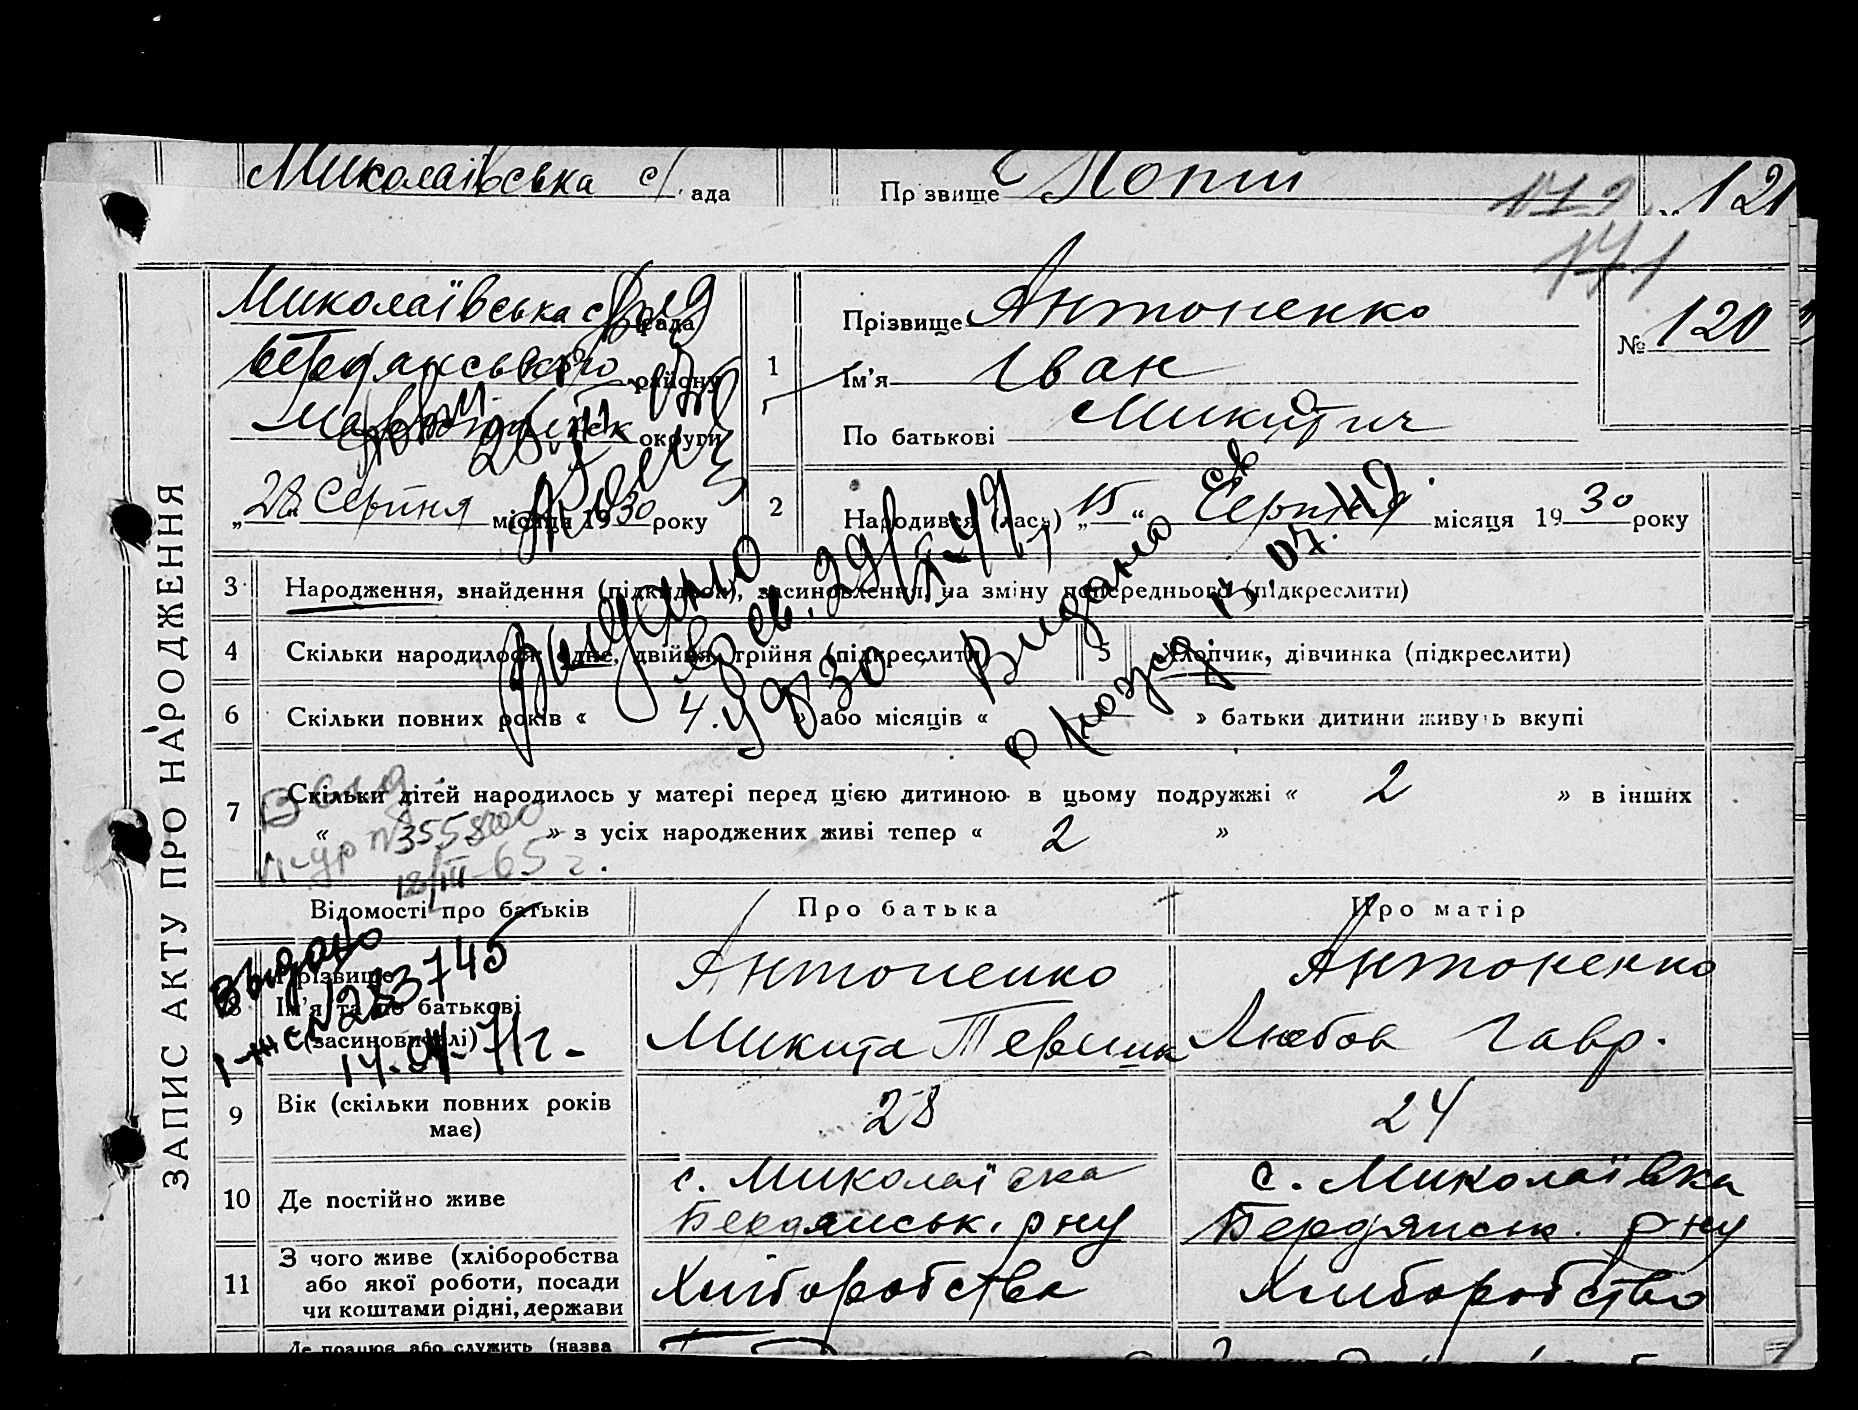 Миколаївська с/ ада Прізвище Попій
172 121
171
Миколаївська с рада
Бердянського району
округи
„28 Серпня місяця 1930 року
1 Прізвище Антоненко
Ім'я Іван
По батькові Микитич
№ 120
2 Народився (лась) „15“ Серпня місяця 1930 року
ЗАПИС АКТУ ПРО НАРОДЖЕННЯ
3 Народження, знайдення (підкидьок), засиновлення, на зміну попереднього (підкреслити)
4 Скільки народилося: одне, двійня, трійня (підкреслити) 5 Хлопчик, дівчинка (підкреслити)
6 Скільки повних років « 4 » або місяців « — » батьки дитини живуть вкупі
7 Скільки дітей народилось у матері перед цією дитиною в цьому подружжі « 2 » в інших
« » з усіх народжених живі тепер « 2 »
Видано
св. 29/
У 830
Видано
07.49
№355800
18/III-65 г.
Відомості про батьків Про батька Про матір
Выдано
№283745
14.04-71г.
8 Прізвище
Ім'я та по батькові
(засиновителі)
Антоненко
Микита
Антоненко
Любов Гавр.
9 Вік (скільки повних років
має)
28 24
10 Де постійно живе
с. Миколаївка
Бердянськ. рну
с. Миколаївка
Бердянськ. рну
11 З чого живе (хліборобства
або якої роботи, посади
чи коштами рідні, держави
Хліборобства
Хліборобство
Де працює або служить (назва